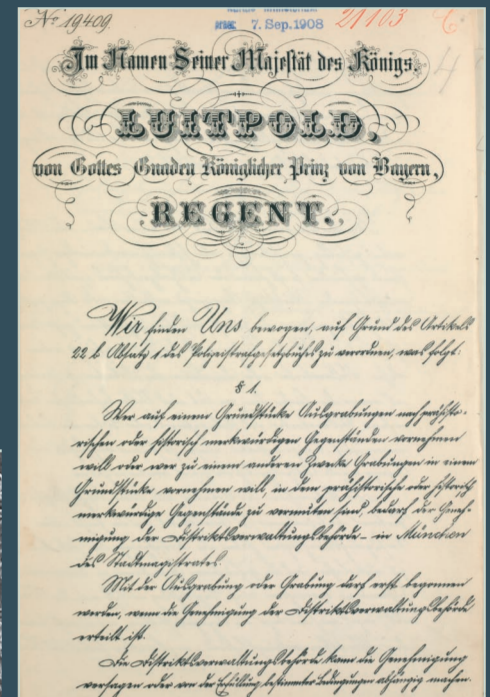 No 19409.
7. Sep. 1908
21103
4
Im Namen Seiner Majestät des Königs.
LUITPOLD,
von Gottes Gnaden Königlicher Prinz von Bayern,
REGENT.
Wir finden Uns bewogen, auf Grund des Artikels
22 b Absatz 1 des Polizeistrafgesetzbuches zu verordnen, was folgt:
§ 1.
Wer auf einem Grundstücke Ausgrabungen nach prähisto-
rischen oder historisch merkwürdigen Gegenständen vornehmen
will oder wer zu einem anderen Zwecke Grabungen in einem
Grundstücke vornehmen will, in dem prähistorische oder historisch
merkwürdige Gegenstände zu vermuten sind, bedarf der Geneh-
migung der Distriktsverwaltungsbehörde – in München
des Stadtmagistrates.
Mit der Ausgrabung oder Grabung darf erst begonnen
werden, wenn die Genehmigung der Distriktsverwaltungsbehörde
erteilt ist.
Die Distriktsverwaltungsbehörde kann die Genehmigung
versagen oder von der Erfüllung bestimmter Bedingungen abhängig machen.